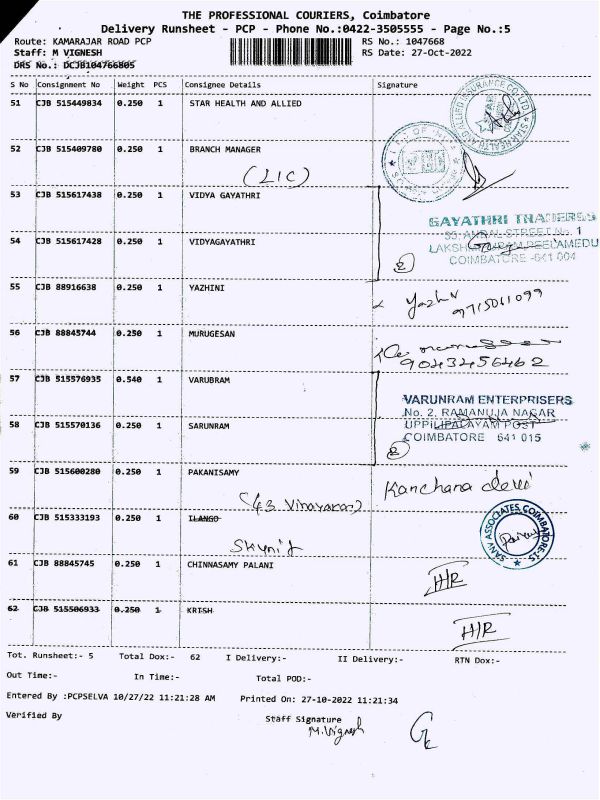 THE PROFESSIONAL COURIERS, Coimbatore
Delivery Runsheet - PCP - Phone No.:0422-3505555 - Page No.:5
Route: KAMARAJAR ROAD PCP RS No.: 1047668
Staff: M VIGNESH RS Date: 27-Oct-2022
DRS No.: DCJB104766805
S No Consignment No Weight PCS Consignee Details Signature
51 CJB 515449834 0.250 1 STAR HEALTH AND ALLIED
52 CJB 515409780 0.250 1 BRANCH MANAGER
(LIC)
53 CJB 515617438 0.250 1 VIDYA GAYATHRI
GAYATHRI TRADERS
54 CJB 515617428 0.250 1 VIDYAGAYATHRI
COIMBATORE -641 004
2
55 CJB 88916638 0.250 1 YAZHINI
9715061099
56 CJB 88845744 0.250 1 MURUGESAN
9043456462
57 CJB 515576935 0.540 1 VARUBRAM
VARUNRAM ENTERPRISERS
No. 2, RAMANUJA NAGAR
58 CJB 515570136 0.250 1 SARUNRAM
UPPILIPALAYAM POST
COIMBATORE 641 015
2
59 CJB 515600280 0.250 1 PAKANISAMY
Kanchana devi
60 CJB 515333193 0.250 1 ILANGO
SANV ASSOCIATES, COIMBATORE-15
61 CJB 88845745 0.250 1 CHINNASAMY PALANI
H/R
62 CJB 515506933 0.250 1 KRISH
H/R
Tot. Runsheet:- 5 Total Dox:- 62 I Delivery:- II Delivery:- RTN Dox:-
Out Time:- In Time:- Total POD:-
Entered By :PCPSELVA 10/27/22 11:21:28 AM Printed On: 27-10-2022 11:21:34
Verified By Staff Signature
M.Vignesh